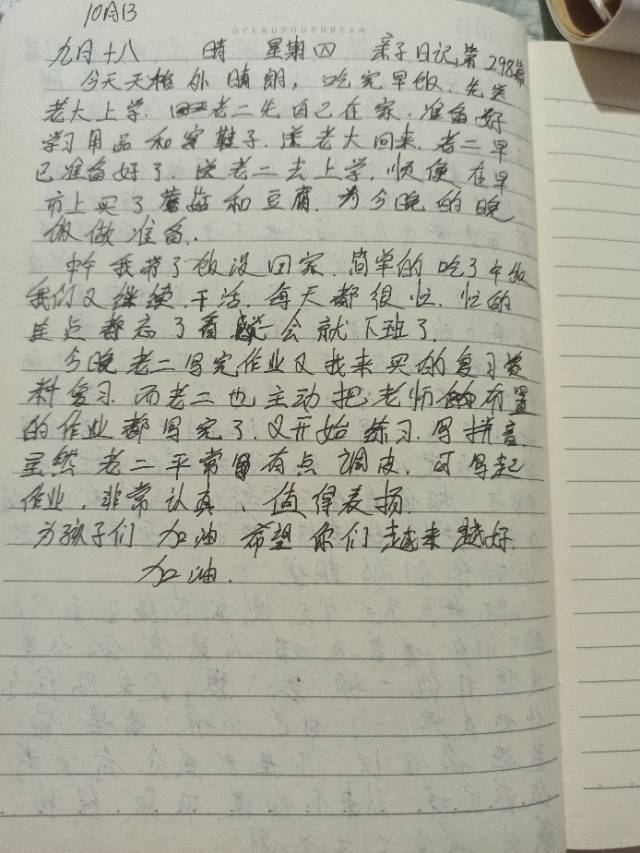 OPENUPOURDREAM
10月13
九月十八 晴 星期四 亲子日记,第298篇
今天天格外晴朗，吃完早饭.先送
老大上学.老二先自己在家.准备好
学习用品和穿鞋子.送老大回来.老二早
已准备好了.送老二去上学.顺便在早
市上买了蘑菇和豆腐.为今晚的晚
饭做准备.
中午我带了饭没回家.简单的吃了午饭
我们又继续干活.每天都很忙.忙的
连点都忘了看一会就下班了.
今晚老二写完作业又找来买的复习资
料复习.而老二也主动把老师布置
的作业都写完了.又开始练习.写拼音.
虽然老二平常有点调皮.可写起
作业.非常认真、值得表扬.
为孩子们加油希望你们越来越好.
加油.